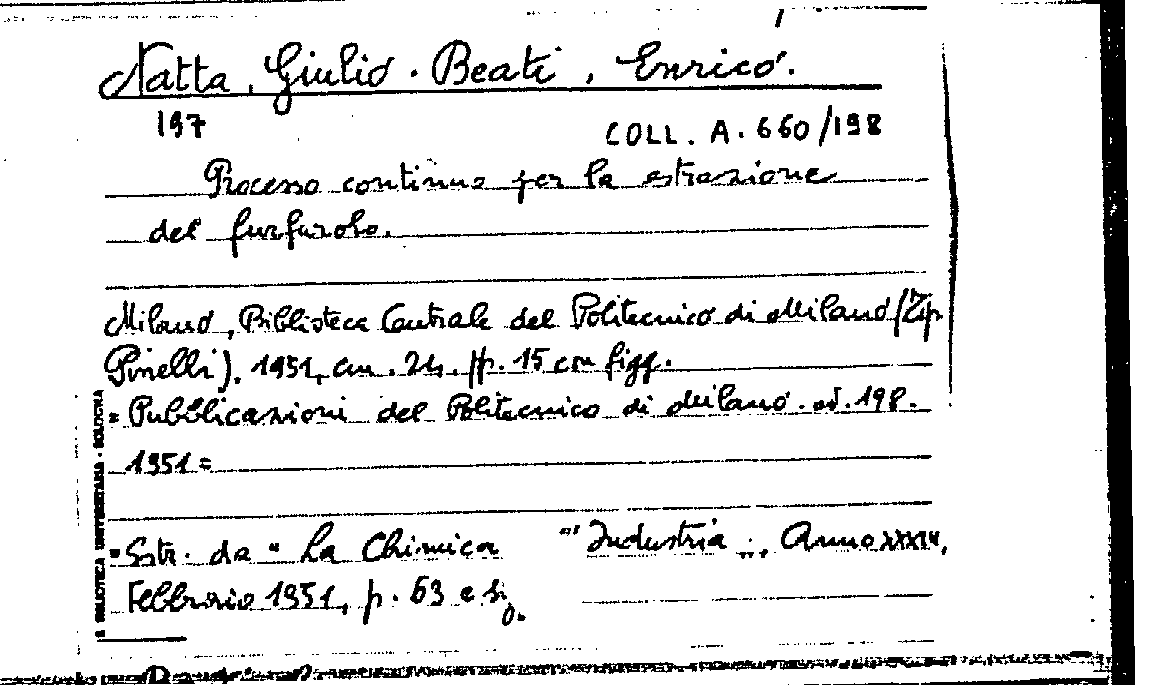 Natta, Giulio. Beati, Enrico.
197
COLL. A. 660/198
Processo continuo per la estrazione
del furfurolo.
Milano, Biblioteca Centrale del Politecnico di Milano (Tip.
Pinelli). 1951, cm. 24. pp. 15 con figg.
= Pubblicazioni del Politecnico di Milano. n. 198.
1951 =
= Estr. da " La Chimica Industria ", Anno
Febbraio 1951, p. 63 e sg.
BIBLIOTECA UNIVERSITARIA - BOLOGNA